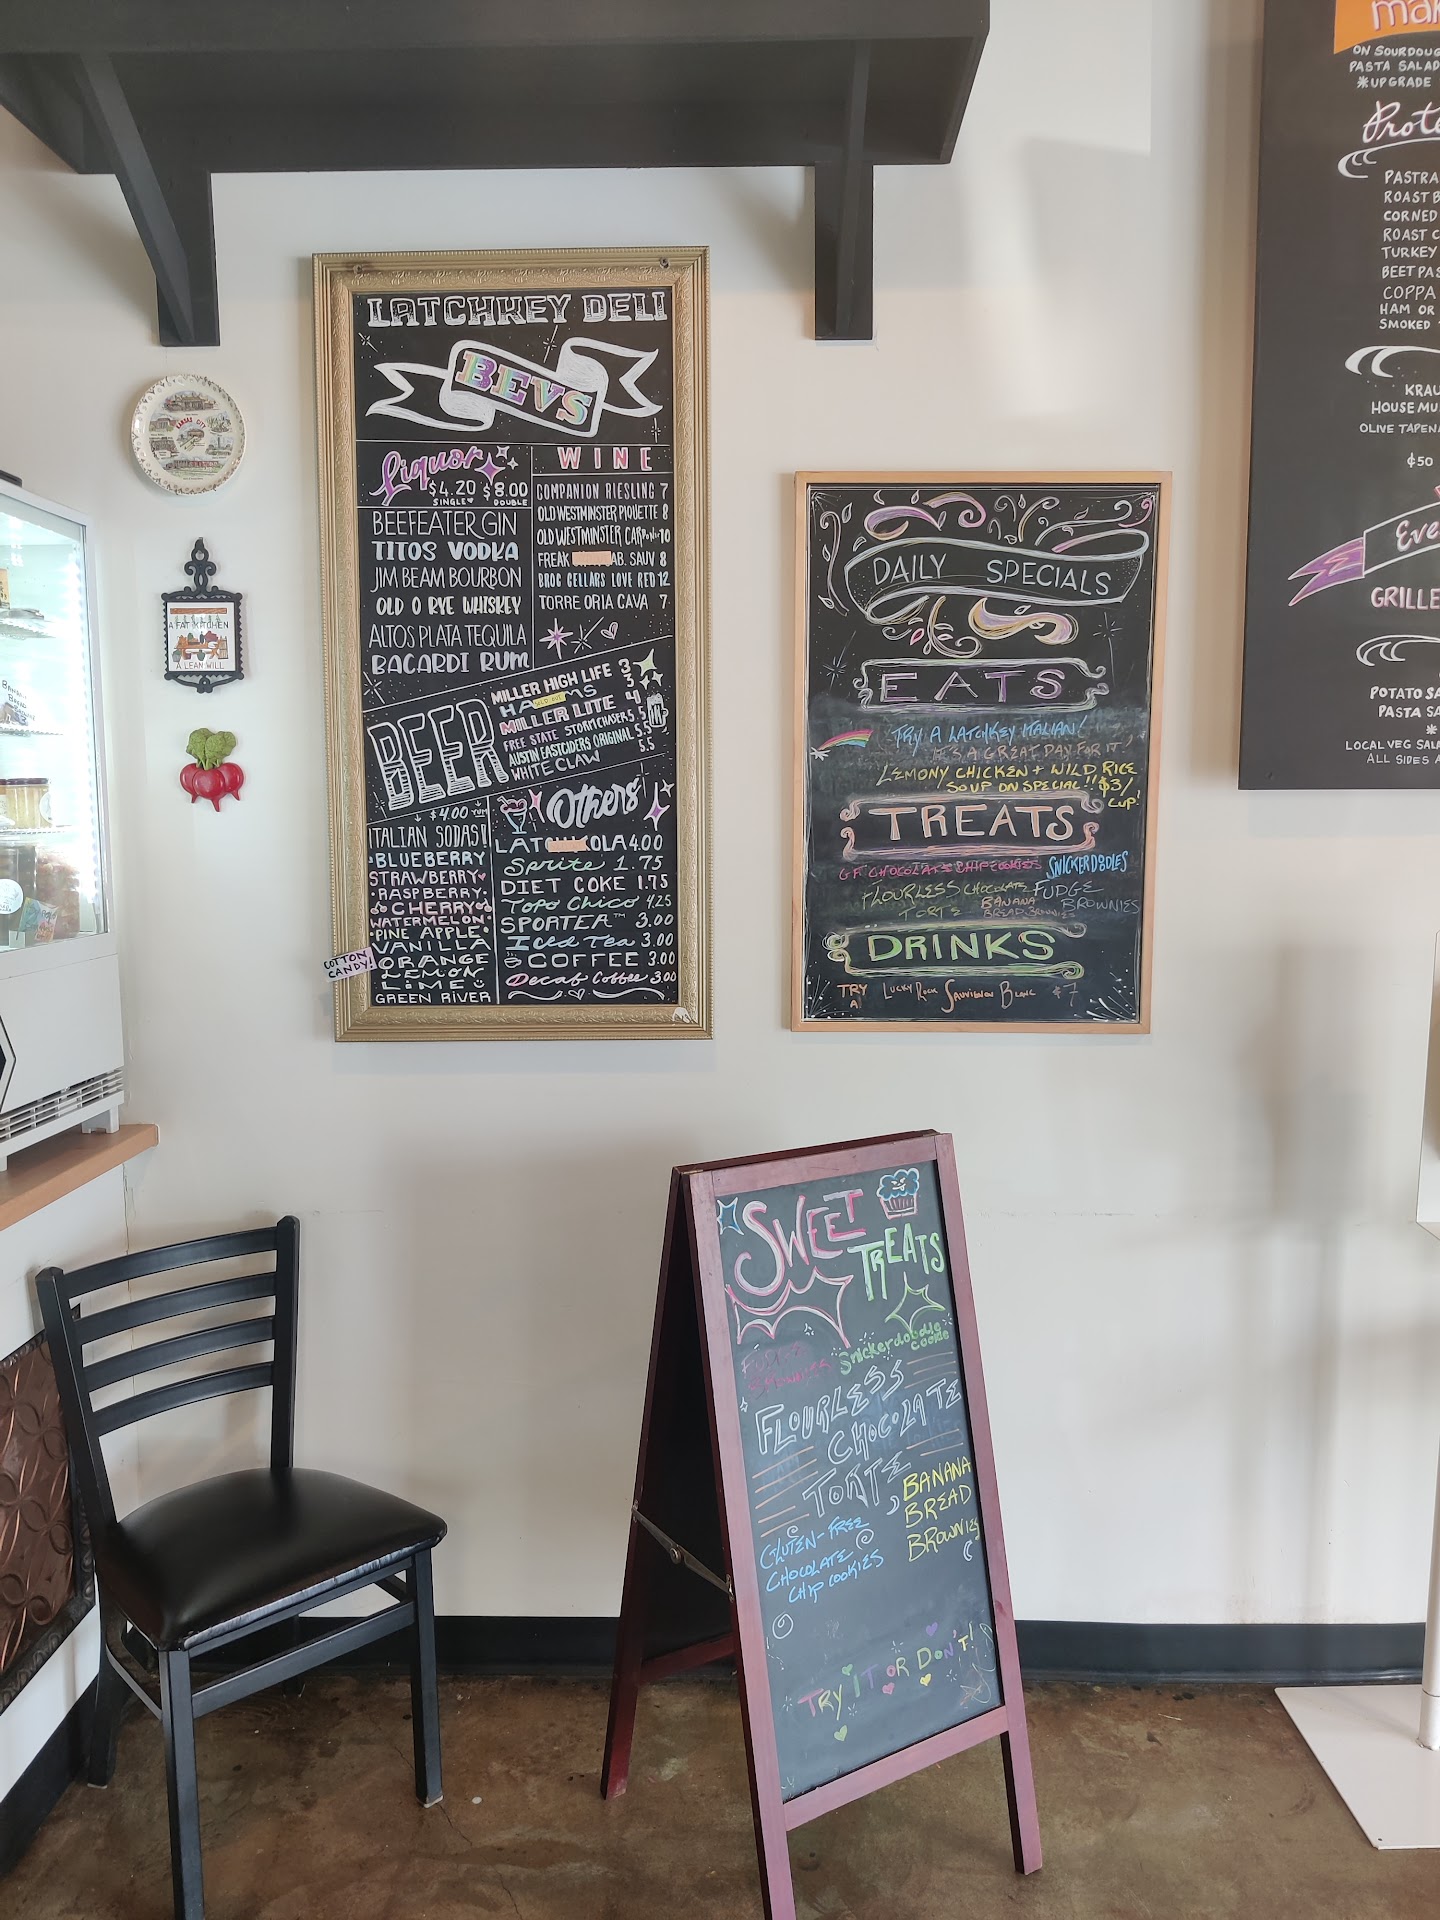 LATCHKEY DELI
BEVS
Liquor
$4.20 $8.00
SINGLE DOUBLE
BEEFEATER GIN
TITOS VODKA
JIM BEAM BOURBON
OLD O RYE WHISKEY
ALTOS PLATA TEQUILA
BACARDI RUM
WINE
COMPANION RIESLING 7
OLD WESTMINSTER PIQUETTE 8
OLD WESTMINSTER 10
FREAK AB. SAUV 8
BROC CELLARS LOVE RED 12
TORRE ORIA CAVA 7
BEER
MILLER HIGH LIFE 3
HAMS 3
SOLD OUT
MILLER LITE 4
FREE STATE STORMCHASER 5.5
AUSTIN EASTCIDERS ORIGINAL 5.5
WHITE CLAW 5.5
$4.00 YUM
ITALIAN SODAS!
BLUEBERRY
STRAWBERRY
RASPBERRY
CHERRY
WATERMELON
PINE APPLE
VANILLA
ORANGE
LEMON
LIME
GREEN RIVER
COTTON
CANDY!
Others
LATCH OLA 4.00
Sprite 1.75
DIET COKE 1.75
Topo Chico 4.25
SPORTEA™ 3.00
Iced Tea 3.00
COFFEE 3.00
Decaf Coffee 3.00
KANSAS CITY
A FAT KITCHEN
A LEAN WILL
DAILY SPECIALS
EATS
TRY A LATCHKEY ITALIAN!
IT'S A GREAT DAY FOR IT!
LEMONY CHICKEN + WILD RICE
SOUP ON SPECIAL!! $3/
CUP!
TREATS
GF CHOCOLATE CHIP COOKIES SNICKERDOODLES
FLOURLESS CHOCOLATE
TORTE
BANANA
BREAD BROWNIES
FUDGE
BROWNIES
DRINKS
TRY
A
LUCKY ROCK SAUVIGNON BLANC $7
SWEET
TREATS
FUDGE
BROWNIES
Snickerdoodle
cookie
FLOURLESS
CHOCOLATE
TORTE,
BANANA
BREAD
BROWNIES
GLUTEN-FREE
CHOCOLATE
CHIP COOKIES
TRY IT OR DON'T!
mak
ON SOURDOUG
PASTA SALAD
*UPGRADE
Prote
PASTRA
ROAST B
CORNED
ROAST C
TURKEY
BEET PAS
COPPA
HAM OR
SMOKED
KRAU
HOUSE MU
OLIVE TAPENA
¢50
Eve
GRILLE
POTATO SA
PASTA SA
*
LOCAL VEG SALA
ALL SIDES A